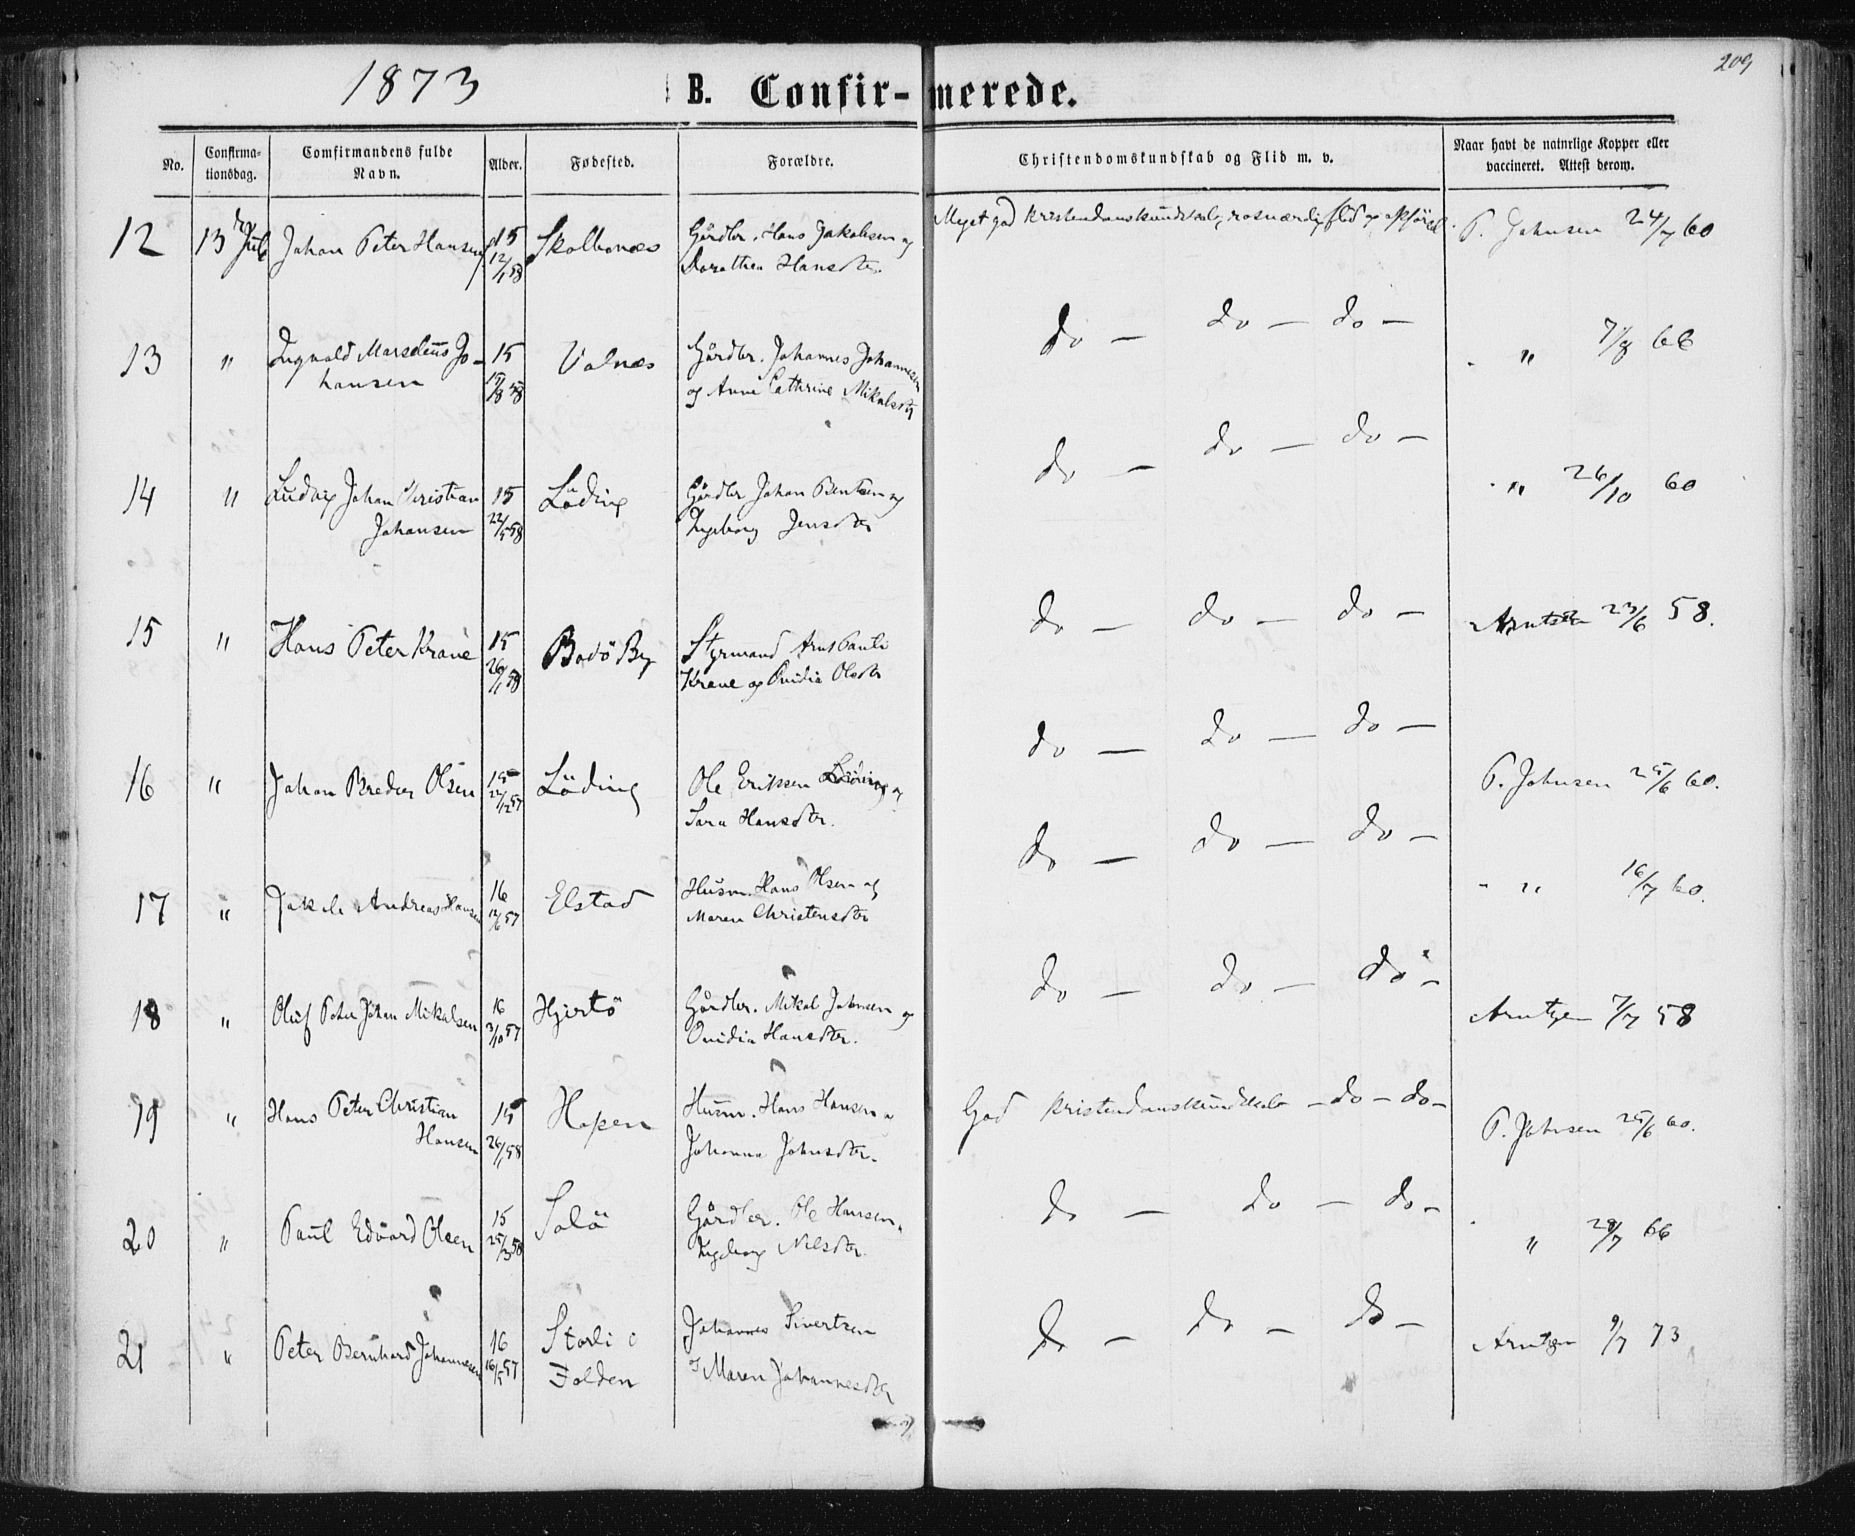 209
1873 B. Confir-merede.
No. Confirma-tionsdag. Comfirmandens fulde Navn. Alder. Fødested. Forældre. Christendomskundskab og Flid m. v. Naar havt de naturlige Kopper eller vaccineret. Attest derom.
12 13 Juli Johan Peter Hansen 15 12/1 58 Gårdbr. Hans Jakobsen og Dorothea Hansdtr. Meget god kristendomskundskab, rosværdig flid og opførsel P. Johnsen 24/7 60
13 " Ingvald Marselius Johansen 15 15/8 58 Valnæs Gårdbr. Johannes Johannesen og Anne Cathrine Mikalsdtr do — do — do — " 7/8 66
14 " Ludvig Johan Christian Johansen 15 22/5 58 Löding Gårdbr Johan Bentsen og Ingeborg Jensdtr do — do — do — " 26/10 60
15 " Hans Peter Krane 15 26/1 58 Bodö By Styrmand Arnt Pauli Krane og Ovidia Olsdtr do — do — do — Arntzen 23/6 58.
16 " Johan Bredor Olsen 15 22/12 57 Löding Ole Eriksen Löding og Sara Hansdtr. do — do — do — P. Johnsen 25/6 60.
17 " Jakob Andreas Hansen 16 12/6 57 Elstad Husm. Hans Olsen og Maren Christensdtr do — do — do — " 16/7 60.
18 " Oluf Peter Johan Mikalsen 16 3/10 57 Hjertö Gårdbr. Mikal Johnsen og Ovidia Hansdtr. do — do — do — Arntzen 7/7 58
19 " Hans Peter Christian Hansen 15 26/1 58 Hopen Husm. Hans Hansen og Johanna Johnsdtr. God kristendomskundskab — do — do — P. Johnsen 25/6 60.
20 " Paul Edvard Olsen 15 25/3 58 Salö Gårdbr. Ole Hansen Ingeborg Nilsdtr. do — do — do — " 28/7 66
21 " Peter Bernhard Johannesen 16 16/5 57 Storli i Folden Johannes Sivertsen og Maren Johannesdtr do — do — do — Arntzen 9/7 73